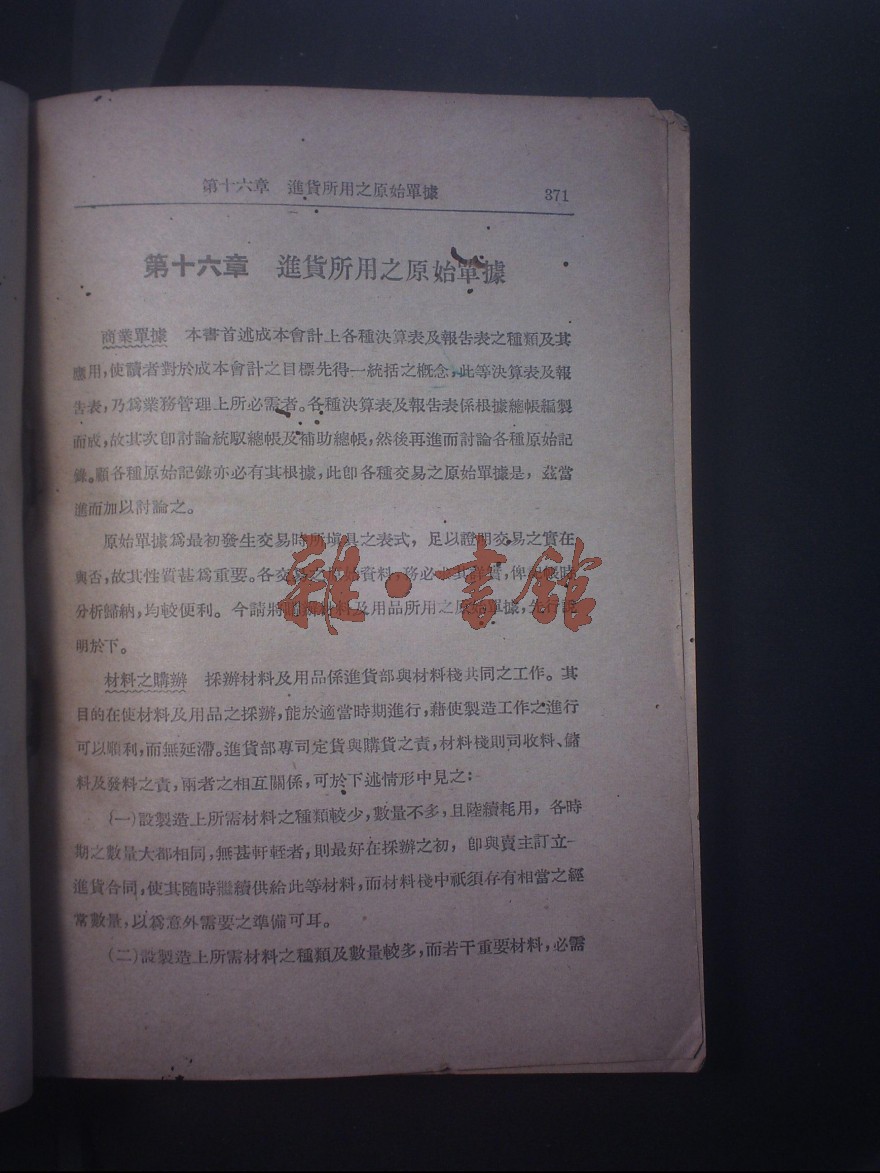 第十六章 進貨所用之原始單據 371
第十六章 進貨所用之原始單據
商業單據 本書首述成本會計上各種決算表及報告表之種類及其
應用,使讀者對於成本會計之目標先得一統括之概念,此等決算表及報
告表,乃爲業務管理上所必需者。各種決算表及報告表係根據總帳編製
而成,故其次卽討論統馭總帳及補助總帳,然後再進而討論各種原始記
錄。顧各種原始記錄亦必有其根據,此卽各種交易之原始單據是,茲當
進而加以討論之。
原始單據爲最初發生交易時所塡具之表式,足以證明交易之實在
與否,故其性質甚爲重要。各交易之原始資料,務必求其詳實,俾記帳時
分析歸納,均較便利。今請將購辦材料及用品所用之原始單據,先行說
明於下。
材料之購辦 採辦材料及用品係進貨部與材料棧共同之工作。其
目的在使材料及用品之採辦,能於適當時期進行,藉使製造工作之進行
可以順利,而無延滯。進貨部專司定貨與購貨之責,材料棧則司收料、儲
料及發料之責,兩者之相互關係,可於下述情形中見之:
(一)設製造上所需材料之種類較少,數量不多,且陸續耗用,各時
期之數量大都相同,無甚軒輊者,則最好在採辦之初,卽與賣主訂立一
進貨合同,使其隨時繼續供給此等材料,而材料棧中祇須存有相當之經
常數量,以爲意外需要之準備可耳。
(二)設製造上所需材料之種類及數量較多,而若干重要材料,必需
雜·書館